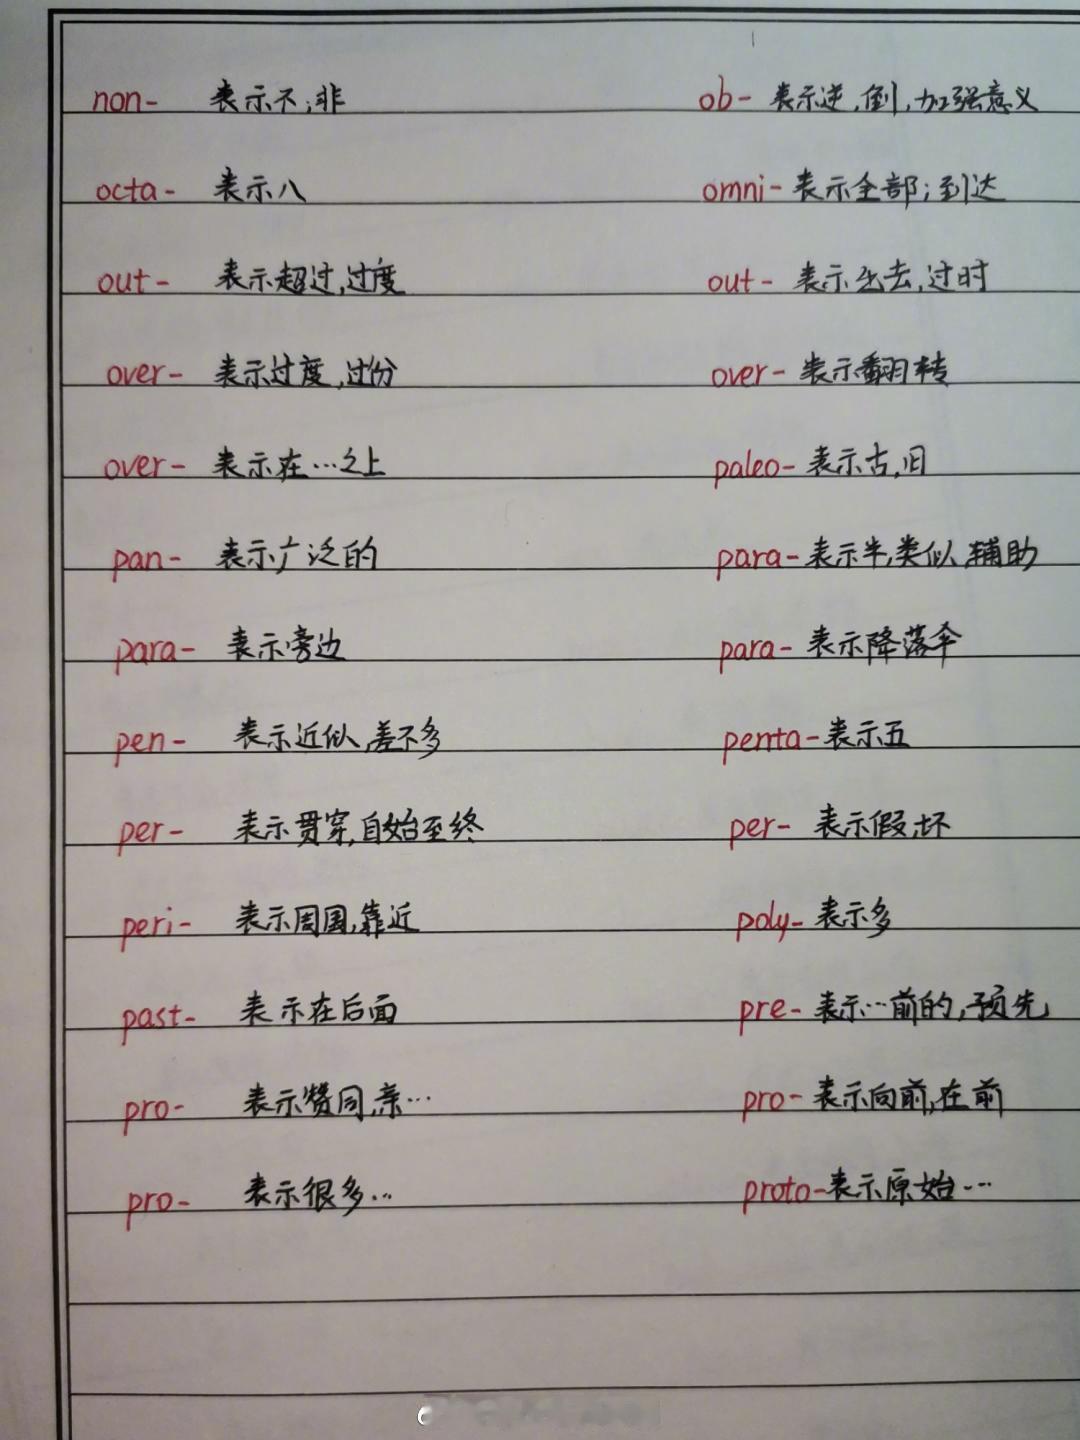 non- 表示不,非 ob- 表示逆,倒,加强意义
octa- 表示八 omni- 表示全部;到达
out- 表示超过,过度 out- 表示出去,过时
over- 表示过度,过份 over- 表示翻转
over- 表示在…之上 paleo- 表示古,旧
pan- 表示广泛的 para- 表示半,类似,辅助
para- 表示旁边 para- 表示降落伞
pen- 表示近似,差不多 penta- 表示五
per- 表示贯穿,自始至终 per- 表示假,坏
peri- 表示周围,靠近 poly- 表示多
past- 表示在后面 pre- 表示…前的,预先
pro- 表示赞同,亲… pro- 表示向前,在前
pro- 表示很多… proto- 表示原始…